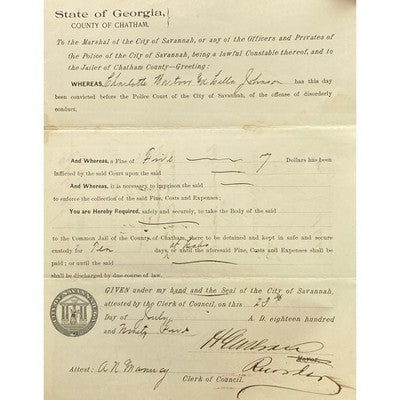 State of Georgia,
COUNTY OF CHATHAM.
To the Marshal of the City of Savannah, or any of the Officers and Privates of
the Police of the City of Savannah, being a lawful Constable thereof, and to
the Jailer of Chatham County—Greeting:
WHEREAS, Charlotte Johnson has this day
been convicted before the Police Court of the City of Savannah, of the offense of disorderly
conduct.
And Whereas, a Fine of Five Dollars has been
inflicted by the said Court upon the said
And Whereas, it is necessary to imprison the said
to enforce the collection of the said Fine, Costs and Expenses:
You are Hereby Required, safely and securely, to take the Body of the said
to the Common Jail of the County of Chatham, there to be detained and kept in safe and secure
custody for Ten days, or until the aforesaid Fine, Costs and Expenses shall be
paid; or until the said
shall be discharged by due course of law.
GIVEN under my hand and the Seal of the City of Savannah,
attested by the Clerk of Council, on this 23th
Day of July A. D. eighteen hundred
and Ninety Four
Mayor.
Recorder
Attest:
Clerk of Council.